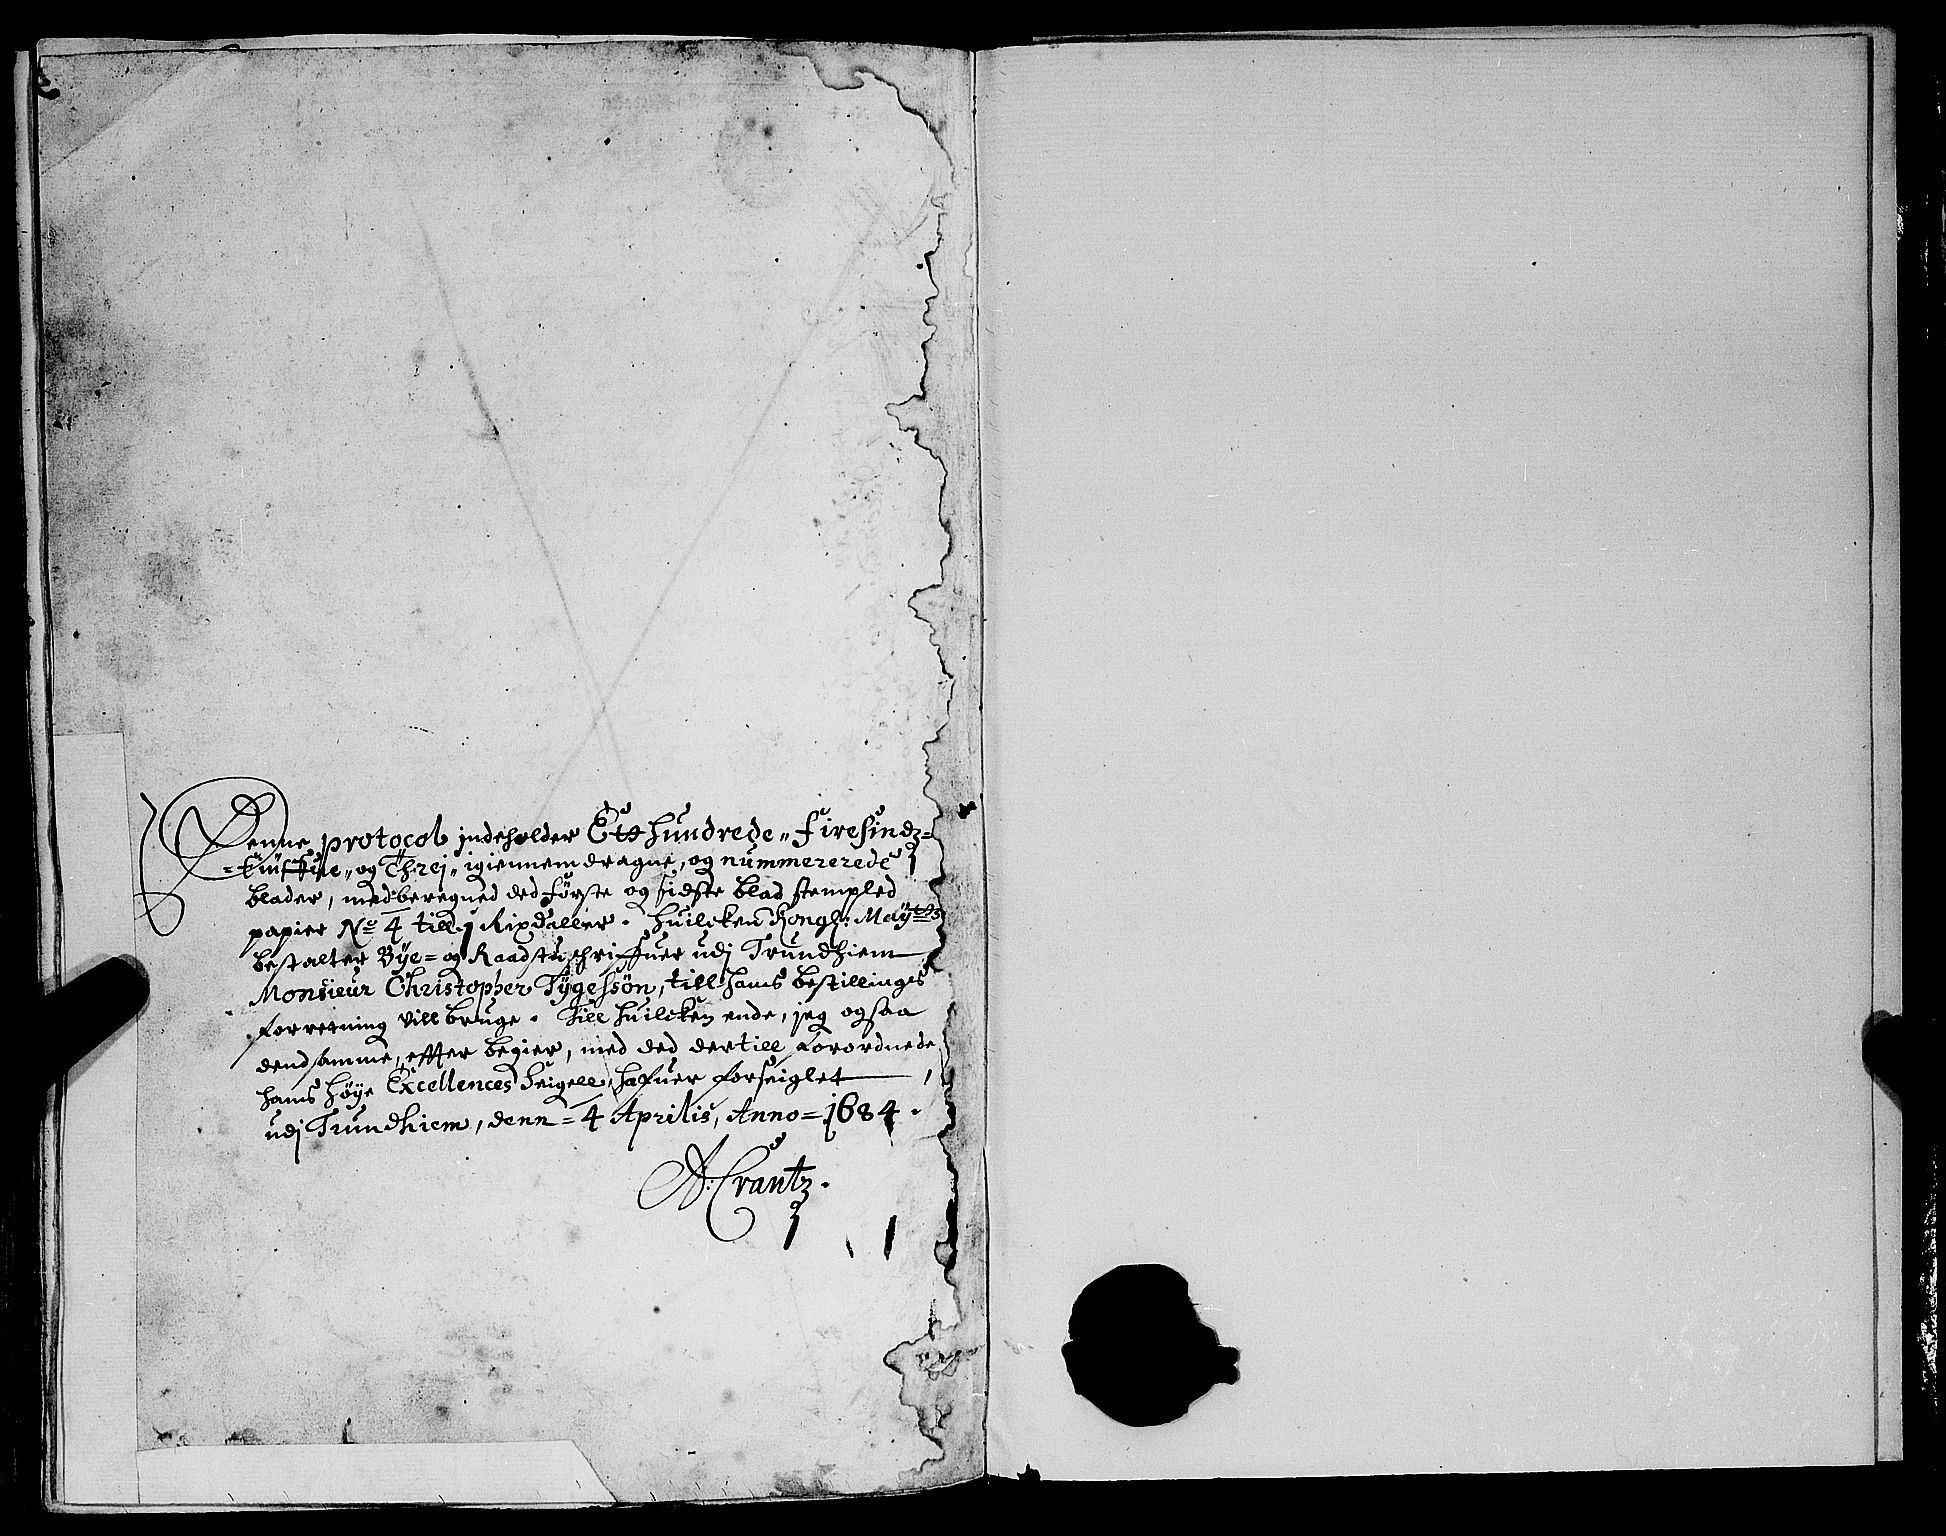 Denne protocol jndeholder Ett hundrede, Firesindz=
=tiufue, og Threj, igiennemdragne, og nummererede
blader, medberegned ded første og sidste blad stempled
papier No 4 till 1 Rixdaller. Huilcken Kongl: Maytts
bestalter Bye= og Raadstuschriffuer udj Trundhiem
Monsieur Christopher Tygessøn, till hans bestillinges
forretning vill bruge. Till huilcken ende, jeg ogsaa
dend samme, effter begier, med ded dertill forordnede
hans høye Excellences Seigell, hafuer forseiglet
udj Trundhiem, denn = 4 Aprilis, Anno = 1684.
A: Crantz.